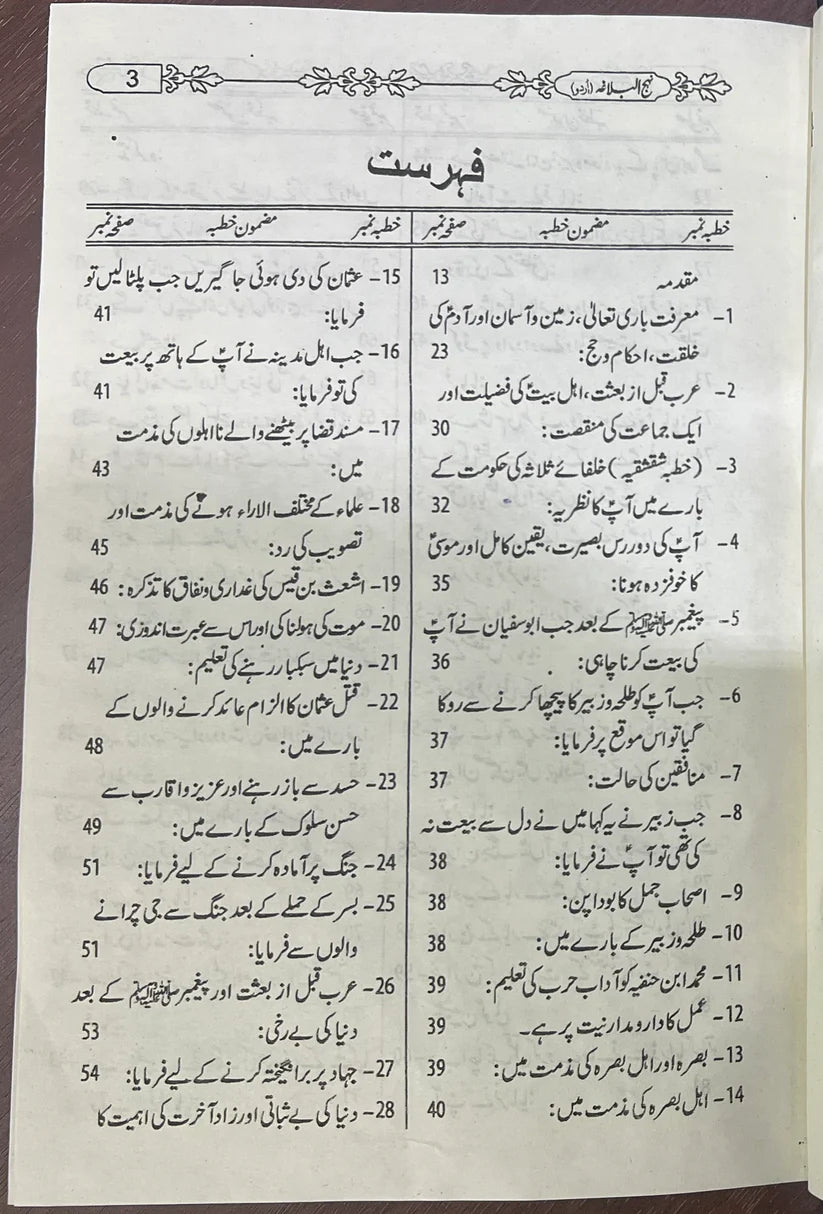 3
نہج البلاغہ (اردو)
فہرست
خطبہ نمبر مضمون خطبہ صفحہ نمبر
مقدمہ 13
1– معرفت باری تعالیٰ، زمین و آسمان اور آدمؑ کی
خلقت، احکام و حج: 23
2– عرب قبل از بعثت، اہل بیتؑ کی فضیلت اور
ایک جماعت کی منقصت: 30
3– (خطبہ شقشقیہ) خلفائے ثلاثہ کی حکومت کے
بارے میں آپؑ کا نظریہ: 32
4– آپؑ کی دور رس بصیرت، یقین کامل اور موسیٰؑ
کا خوفزدہ ہونا: 35
5– پیغمبر ﷺ کے بعد جب ابوسفیان نے آپؑ
کی بیعت کرنا چاہی: 36
6– جب آپؑ کو طلحہ و زبیر کا پیچھا کرنے سے روکا
گیا تو اس موقع پر فرمایا: 37
7– منافقین کی حالت: 37
8– جب زبیر نے یہ کہا میں نے دل سے بیعت نہ
کی تھی تو آپؑ نے فرمایا: 38
9– اصحاب جمل کا بودا پن: 38
10– طلحہ و زبیر کے بارے میں: 38
11– محمد ابن حنفیہ کو آداب حرب کی تعلیم: 39
12– عمل کا دارومدار نیت پر ہے۔ 39
13– بصرہ اور اہل بصرہ کی مذمت میں: 39
14– اہل بصرہ کی مذمت میں: 40
خطبہ نمبر مضمون خطبہ صفحہ نمبر
15– عثمان کی دی ہوئی جاگیریں جب پلٹا لیں تو
فرمایا: 41
16– جب اہل مدینہ نے آپؑ کے ہاتھ پر بیعت
کی تو فرمایا: 41
17– مسند قضا پر بیٹھنے والے نااہلوں کی مذمت
میں: 43
18– علماء کے مختلف الاراء ہونے کی مذمت اور
تصویب کی رد: 45
19– اشعث بن قیس کی غداری و نفاق کا تذکرہ: 46
20– موت کی ہولناکی اور اس سے عبرت اندوزی: 47
21– دنیا میں سبکبار رہنے کی تعلیم: 47
22– قتل عثمان کا الزام عائد کرنے والوں کے
بارے میں: 48
23– حسد سے باز رہنے اور عزیز و اقارب سے
حسن سلوک کے بارے میں: 49
24– جنگ پر آمادہ کرنے کے لیے فرمایا: 51
25– بسر کے حملے کے بعد جنگ سے جی چرانے
والوں سے فرمایا: 51
26– عرب قبل از بعثت اور پیغمبر ﷺ کے بعد
دنیا کی بے رخی: 53
27– جہاد پر برانگیختہ کرنے کے لیے فرمایا: 54
28– دنیا کی بے ثباتی اور زاد آخرت کی اہمیت کا